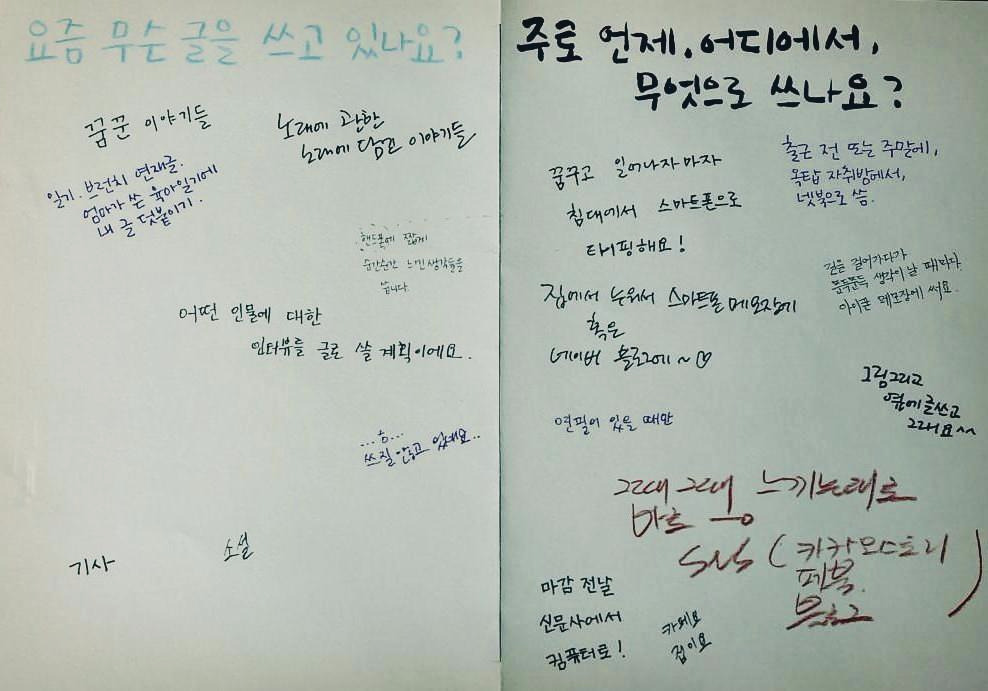 요즘 무슨 글을 쓰고 있나요?
꿈꾼 이야기들
노래에 관한
노래에 담고 이야기들
일기. 브런치 연재글.
엄마가 쓴 육아일기에
내 글 덧붙이기.
핸드폰에 짧게
순간순간 느낀 생각들을
씁니다.
어떤 인물에 대한
인터뷰를 글로 쓸 계획이에요.
...흠...
쓰질 않고 있네요..
기사
소설
주로 언제, 어디에서,
무엇으로 쓰나요?
꿈꾸고 일어나자마자
침대에서 스마트폰으로
타이핑해요!
출근 전 또는 주말에,
옥탑 자취방에서,
넷북으로 씀.
길을 걸어가다가
문득문득 생각이 날 때마다
아이폰 메모장에 써요.
집에서 누워서 스마트폰 메모장에
혹은
네이버 블로그에~♡
그림그리고
옆에 글쓰고
그래요^^
연필이 있을 때만
그때 그때 느끼는대로
바로
SNS (카카오스토리
페북.
블로그)
마감 전날
신문사에서
컴퓨터로!
카페요
집이요